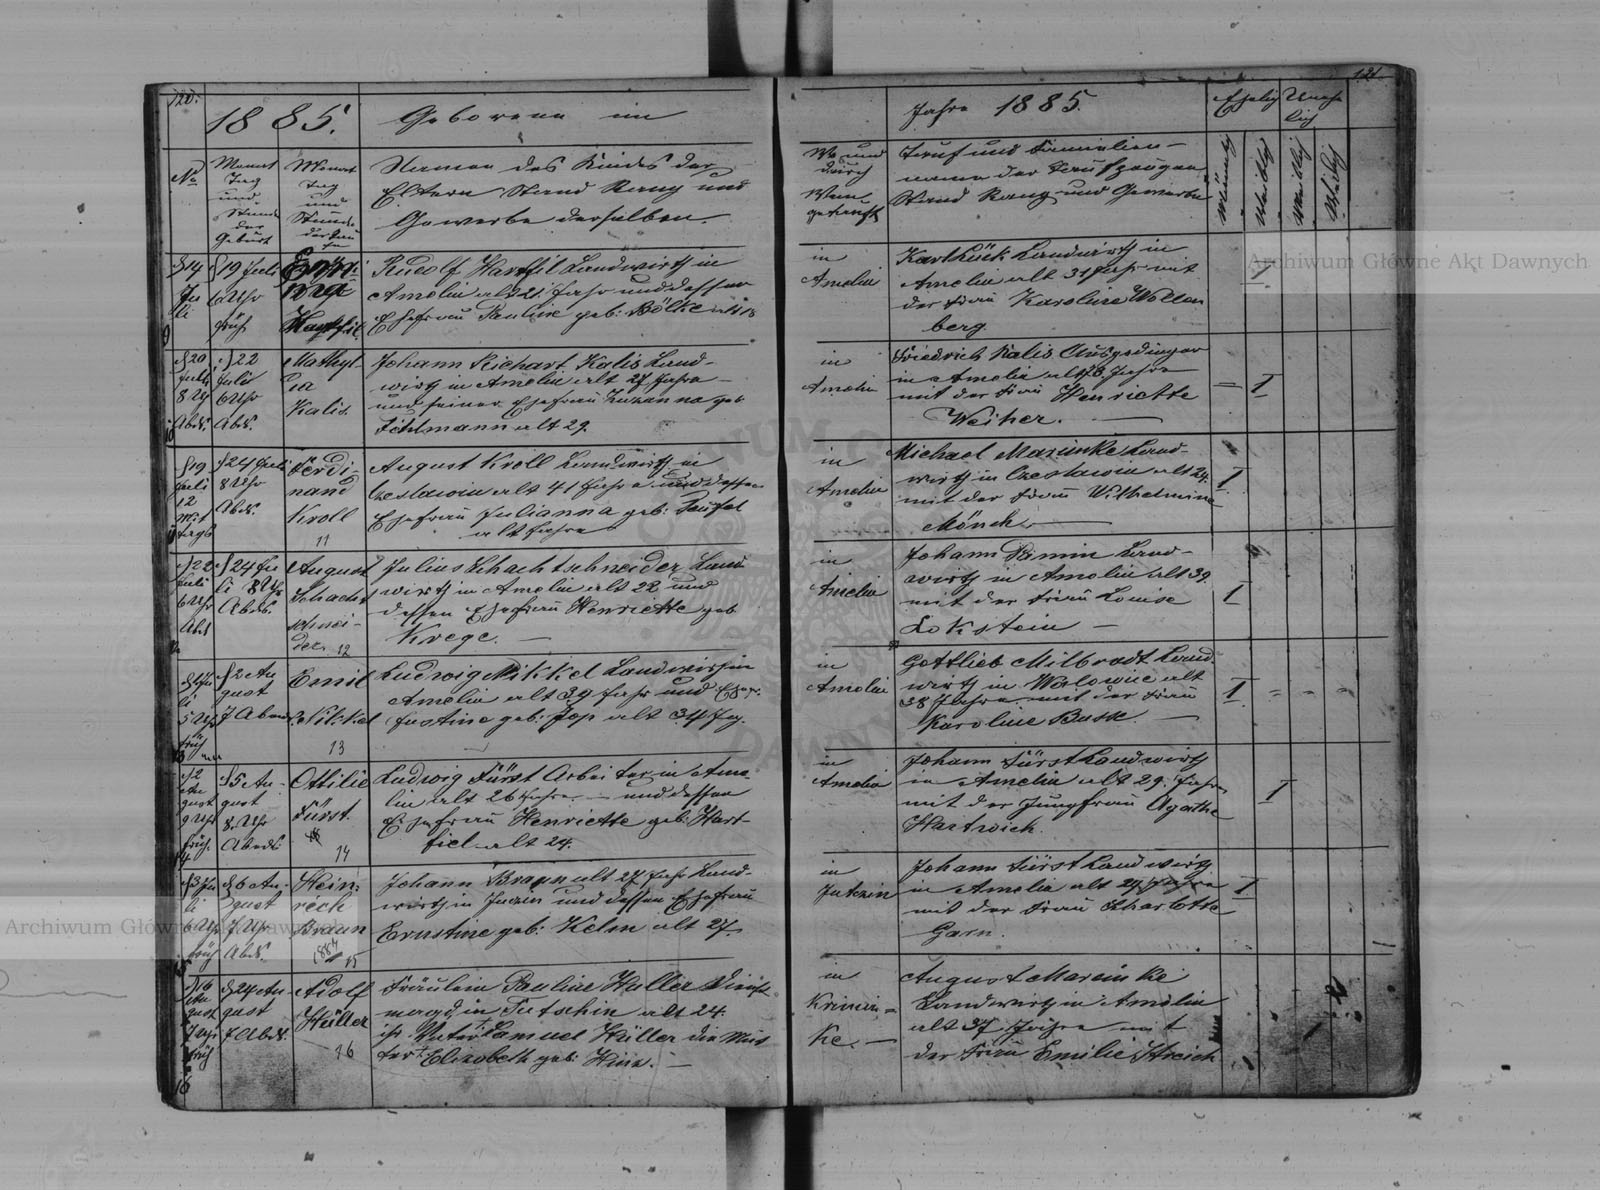 120.
1885.
Geborene im
No
Monat
Tag
und
Stunde
der
Geburt
Monat
Tag
und
Stunde
der Tau
fe
Namen des Kindes der
Eltern Stand Rang und
Gewerbe derselben.
§ 14
Ju
li
9
§ 19 Juli
6 Uhr
früh
Hartfil
Rudolf Hartfil Landwirth in
Amelin alt 21 Jahr und dessen
Ehefrau Pauline geb: Bölke alt 18
§ 20
Juli
8 Uhr
Abds.
10
§ 22
Juli
6 Uhr
Abds.
Mathyl-
da
Kalis.
Johann Richart Kalis Land-
wirth in Amelin alt 27 Jahre
und seiner Ehefrau Zuzanna geb
Föhlmann alt 29.
§ 19
Juli
12
Mit
tags
§ 24 Juli
8 Uhr
Abds.
Ferdi-
nand
Kroll
11
August Kroll Landwirth in
Czeslawin alt 41 Jahre und dessen
Ehefrau Julianna geb:
alt Jahre
§ 22
Juli
6 Uhr
Abd
§ 24 Ju
li 8 Uhr
Abds.
August
Schacht
schnei-
der. 12
Julius Schachtschneider Land
wirth in Amelin alt 22 und
dessen Ehefrau Henriette geb
Krege.
5 Uhr
früh
13
§ 2 Au
gust
7 Abend
Emil
Nikkel
13
Ludwig Nikkel Landwirth in
Amelin alt 39 Jahr und Ehefr.
Justine geb: Jop alt 34 Jg.
§ 2
Au
gust
9 Uhr
früh.
14
§ 5 Au-
gust
8 Uhr
Abends
Ottilie
Fürst.
14
Ludwig Fürst Arbeiter in Ame
lin alt 26 Jahre. und dessen
Ehefrau Henriette geb: Hart-
fiel alt 24.
li
6 Uhr
früh
§ 6 Au-
gust
7 Uhr
Abds.
Hein-
rich
Braun
15
Johann Braun alt 27 Jahr Land-
wirth in und dessen Ehefrau
Ernstine geb: Kelm alt 27.
§ 16
Au
gust
7 Uhr
früh
16
§ 24 Au
gust
7 Abds.
Adolf
Hüller
16
Fräulein Pauline Huller Dienst
magd in Jutschin alt 24.
ihr Vater Samuel Hüller die Mut
ter Elizabeth geb:
121
Jahre 1885.
Ehelig Unehe
lich
Wo und
durch
Wem
getauft
Ruf und Familien-
name der Taufzeugen
Stand Rang und Gewerbe
Männlig
Weiblig
Männlig
Weiblig
in
Amelin
Karl Lück Landwirth in
Amelin alt 31 Jahr mit
der Frau Karoline Wollen
berg.
I
in
Amelin
Friedrich Kalis Ausgedinger
in Amelin alt 78 Jahre
mit der Frau Henriette
Weiher.
I
in
Amelin
Michael Marcinke Land-
wirth in Czeslawin alt 24.
mit der Frau Wilhelmina
Mönch.
I
in
Amelin
Johann Damin Land-
wirth in Amelin alt 39.
mit der Frau Louise
Lokstein
I
in
Amelin
Gottlieb Milbradt Land.
wirth in alt
38 Jahre mit der Frau
Karoline Busse.
I
in
Amelin
Johann Fürst Landwirth
in Amelin alt 29 Jahre
mit der Jungfrau Agathe
Hartwich.
I
in
Jutzin
Johann Fürst Landwirth
in Amelin alt 29 Jahre
mit der Frau Scharlotte
Garn.
I
in
Krzewin-
ke.
August Marcinke
Landwirth in Amelin
alt 37 Jahre mit
der Frau Emilie Streich
1
Archiwum Główne Akt Dawnych
Archiwum Główne Akt Dawnych